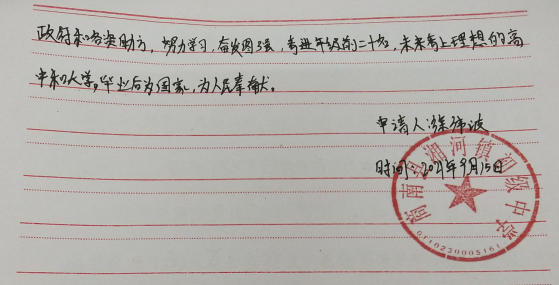 政府和各资助方，努力学习，奋发图强，考进年级前二十名，未来考上理想的高
中和大学。毕业后为国家，为人民奉献。
申请人：徐沛波
时间：2021年9月15日
商南县湘河镇初级中学
6110230005161